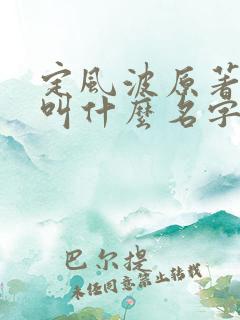 定風波原著
叫什麼名字
巴尔提
未经同意禁止转载